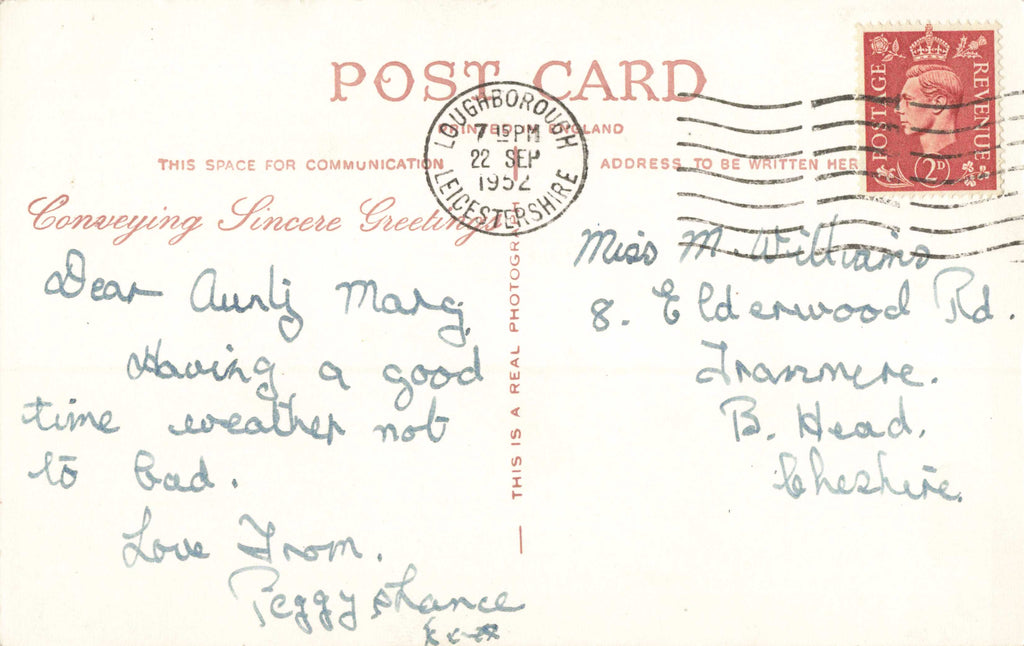 POST CARD
PRINTED IN ENGLAND
THIS SPACE FOR COMMUNICATION
ADDRESS TO BE WRITTEN HER
LOUGHBOROUGH
7 15 PM
22 SEP
1952
LEICESTERSHIRE
POSTAGE
REVENUE
2D
Conveying Sincere Greetings
Dear Aunty Marg.
Having a good
time weather not
to bad.
Love From.
Peggy
THIS IS A REAL PHOTOGRAPH
Miss M. Williams
8. Elderwood Rd.
Tranmere.
B. Head.
Cheshire.